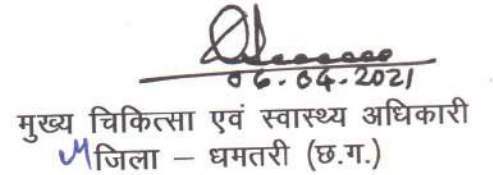 06.04.2021
मुख्य चिकित्सा एवं स्वास्थ्य अधिकारी
जिला – धमतरी (छ.ग.)